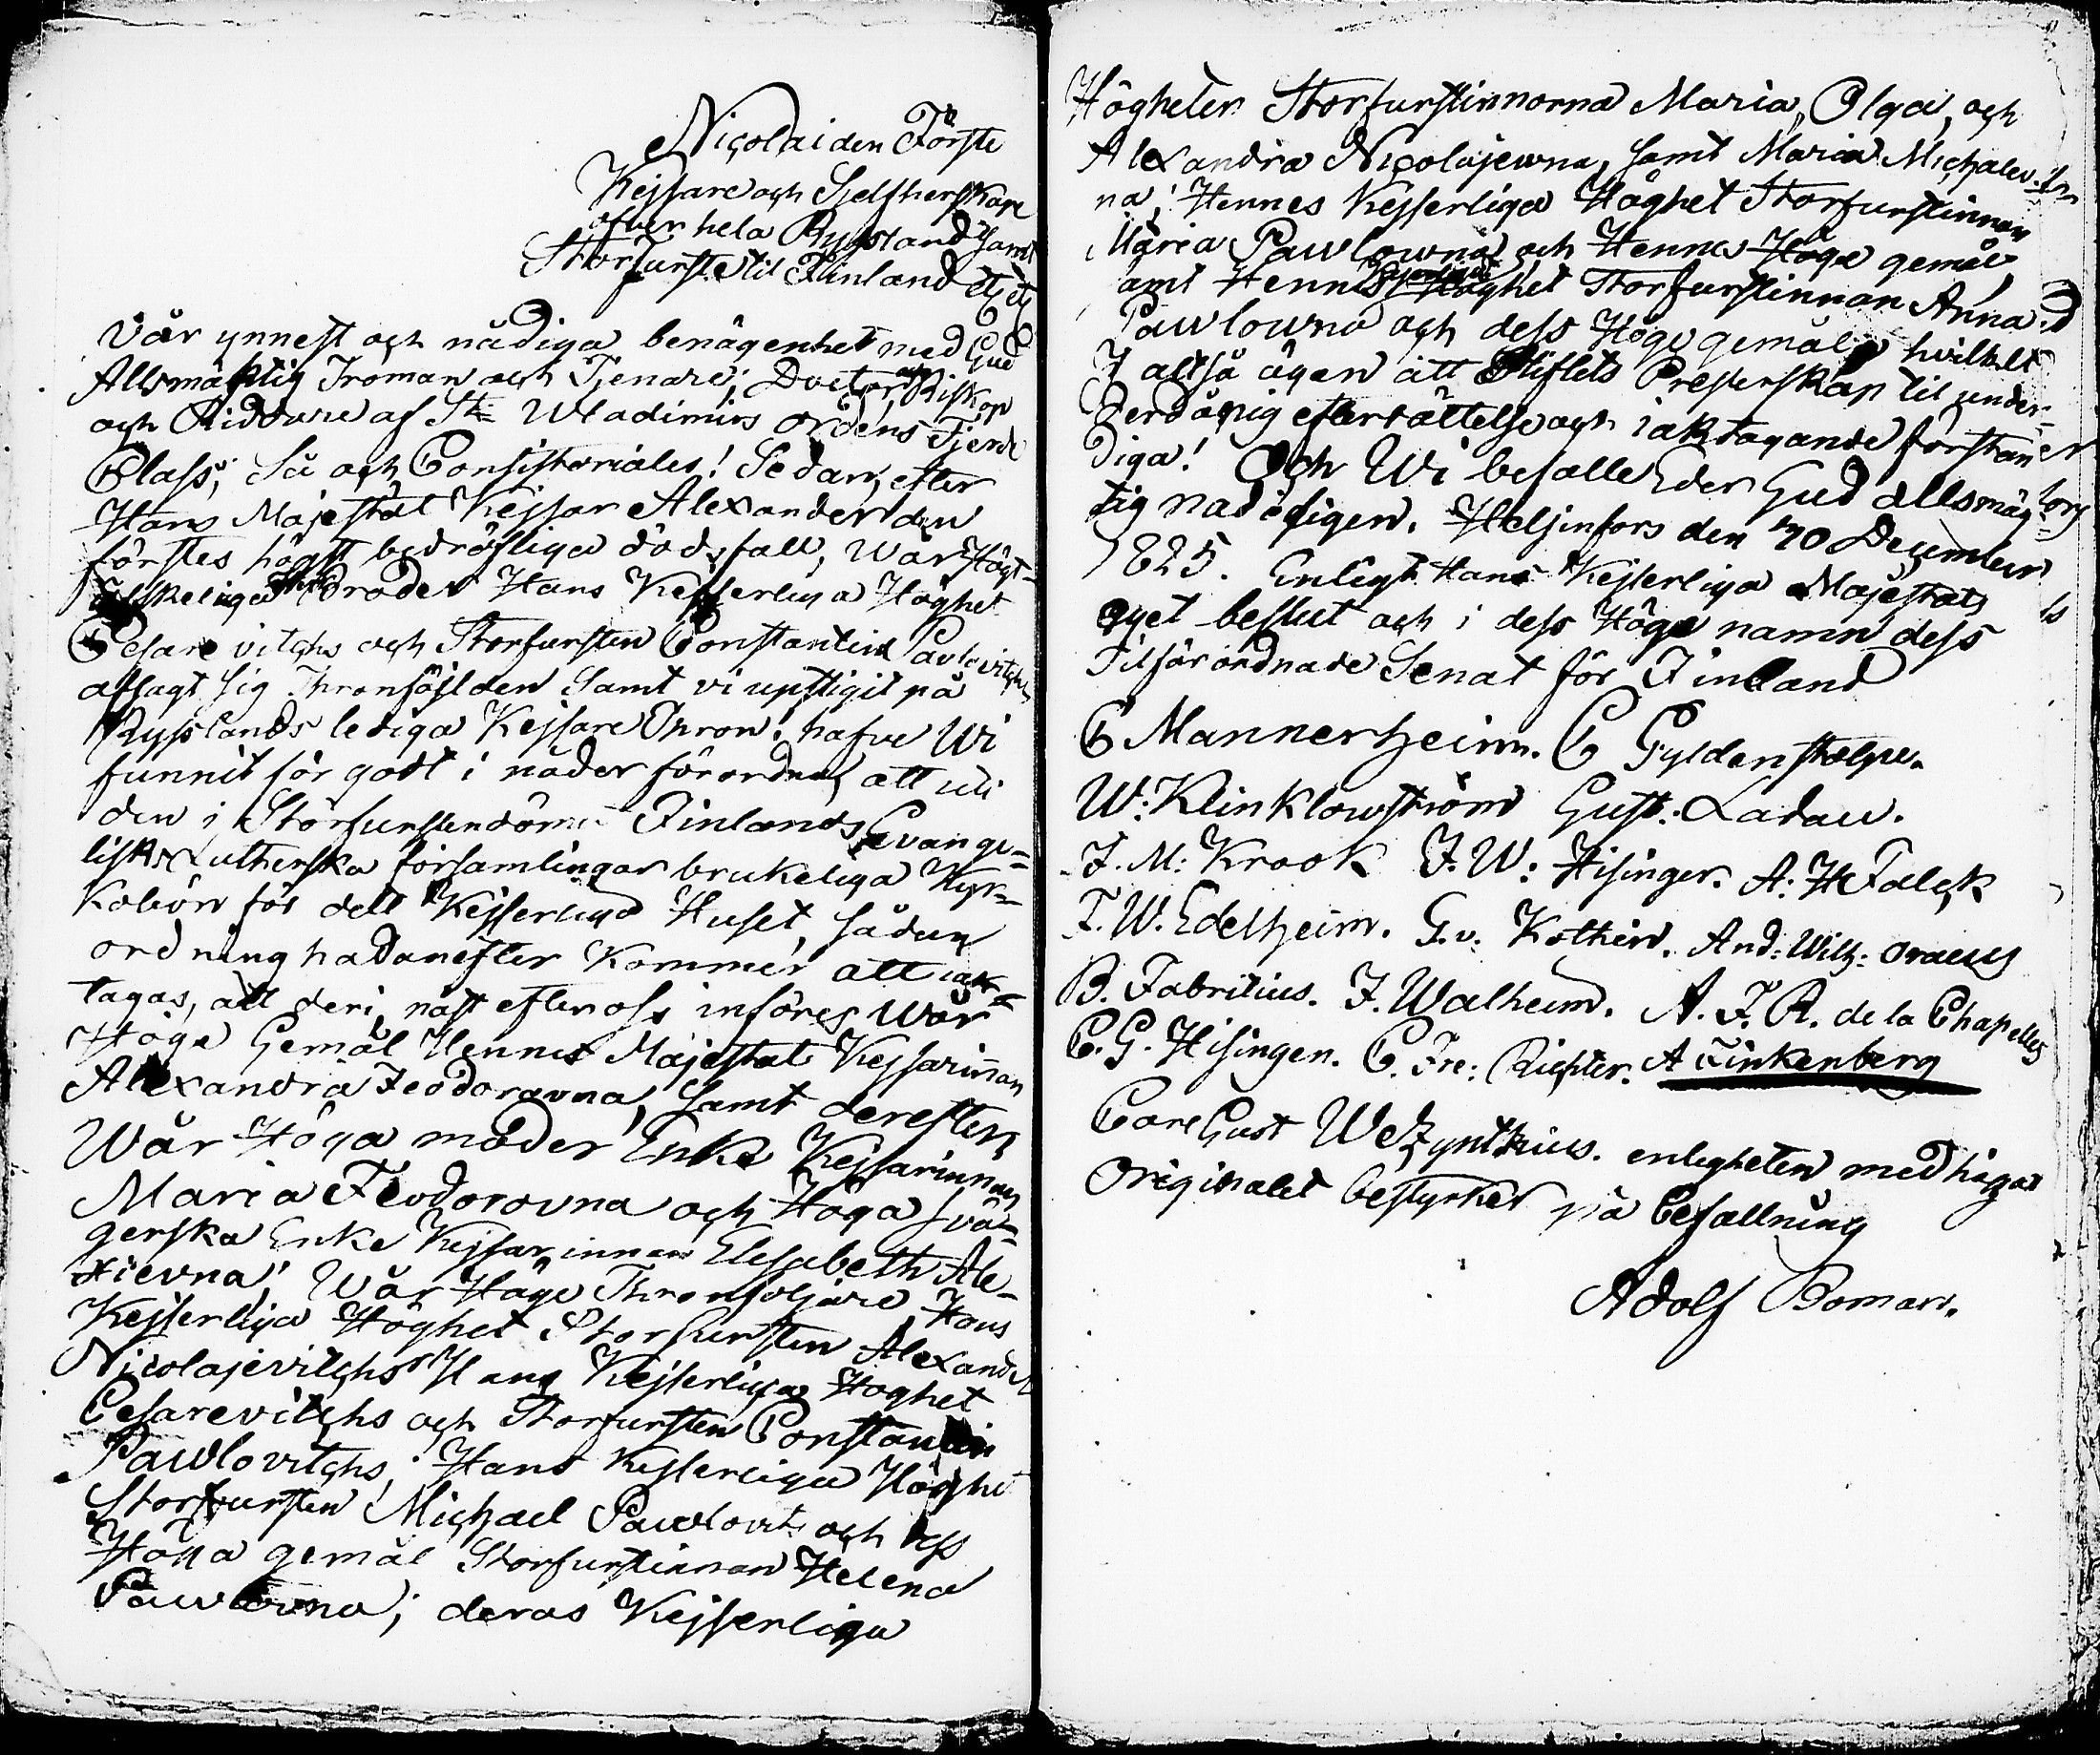 Nicolai den Förste
Kejsare och Sjelfherskare
öfver hela Ryssland Samt
Storfurste til Finland etc etc
Vår ynnest och nådiga benägenhet med Gud
Allsmäktig Troman och Tjenare, Doctor och Biskop
och Riddare af St Wladimirs ordens Fjerde
Class; Så och Consistoriales! Sedan, efter
Hans Majestät Kejsar Alexander den
förstes högst bedröfliga dödsfall, Wår Högt-
älskeliga Broder Hans Kejserliga Höghet
Cesarevitchs och Storfursten Constantin Pavlovitchs
afsagt sig Thronföljden Samt vi upstigit på
Rysslands lediga Kejsare Thron: hafve Wi
funnit för godt i nåder förordna, att uti
den i Storfurstendöme Finlands Evange-
lisk Lutherska församlingar brukeliga Kyr-
kobön för dett Kejserliga Huset, sådan
ordning hädanefter kommer att iakt-
tagas, att deri, näst efter oss införes Wår
Höga Gemål Hennes Majestät Kejsarinnan
Alexandra Feodoravna, Samt derefter
Wår Höga moder Enke Kejsarinnan
Maria Feodorovna och Höga Svä-
gerska Enke Kejsarinnan Elisabeth Ale-
xievna; Wår Höge Thronföljare Hans
Kejserliga Höghet Storfursten Alexander
Nicolajevitchs Hans Kejserliga Höghet
Cesarevitchs och Storfursten Constantin
Pawlovitchs; Hans Kejserliga Höghet
Storfursten Michael Pawlovits och dess
Höga gemål Storfurstinnan Helena
Pawlovna; deras Kejserliga
Högheter Storfurstinnorna Maria, Olga, och
Alexandra Nicolajewna, samt Maria Michalev-
na; Hennes Kejserliga Höghet Storfurstinnan
Maria Pawlowna och Hennes Höge gemål,
samt Hennes Kejserliga Höghet Storfurstinnan Anna
Pawlowna och dess Höge gemål hvilket
I altså ägen att Stiftets Presterskap til under-
derdånig efterrättelse och iakttagande förstän
diga! Och Wi befalle Eder Gud allsmäg-
tig nådeligen. Helsinfors den 20 December
1825. Enligt Hans Kejserliga Majestäts
eget beslut och i dess Höga namn dess
Tilförordnade Senat för Finland
C Mannerheim. C Gyldenstolpe.
W: Klinkowström Gust: Ladau.
J. M: Krook J. W: Hisinger. A: H Falck
F. W. Edelheim. G. v. Kothen. And: Wilh: Oraeus
B. Fabritius. J. Walheim. A. F. R. de la Chapelles
C. G. Hisingen. C. Fre: Richter. A Finkenberg
Carl Gust Wetzynthius. enligheten med höga
originalet bestyrker på Befallning
Adolf Boman.